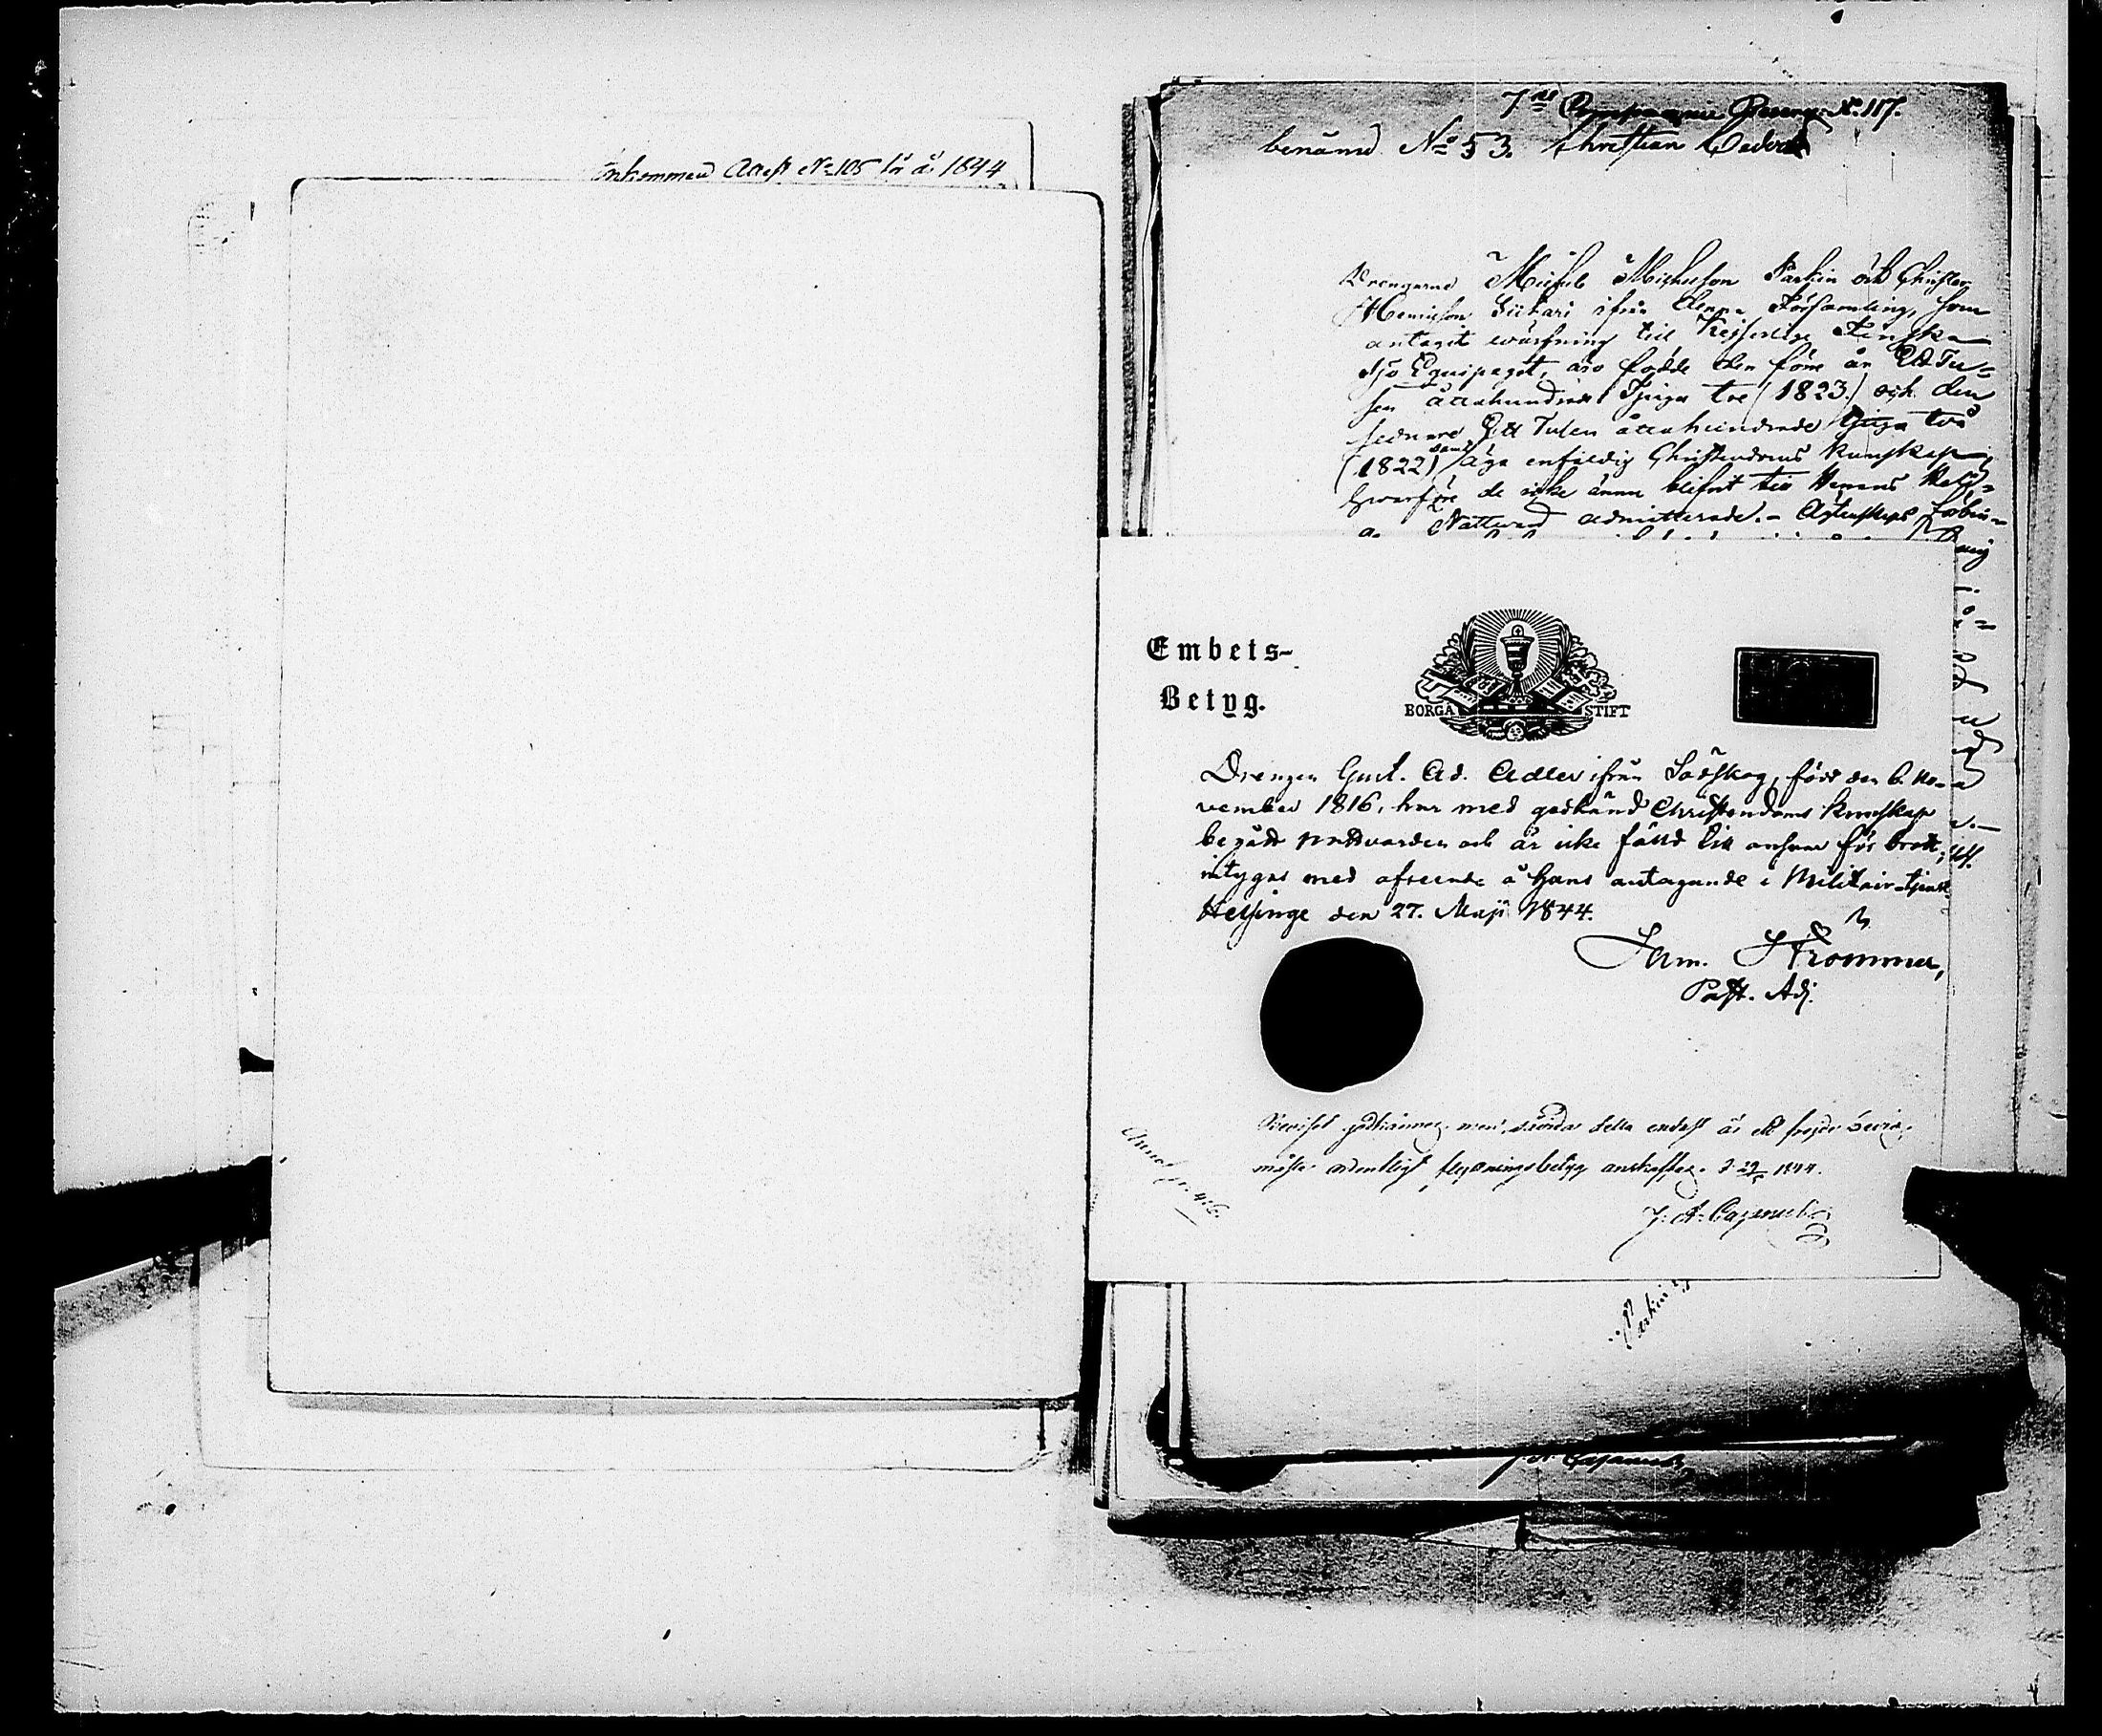 inkommen Attest No 105 för år 1844
7de Compagnie Reserve No. 117.
benämd No 53. Christian Cedor
Drengarne Michel Michelson Parkin och Christer
Henricson Siikari ifrån denna Församling, som
antagit wärfning till Kejserliga Finska
Sjö Equipaget, äro födde den förre år Ett Tu-
sen åttahundrade Tjugu tre (1823) och den
sednare Ett Tusen åttahundrade tjugu två
(1822) samt äga enfaldig Christendoms kunskap,
hwarföre de icke ännu blifwit till Herrans Heli-
ga Nattward admitterade. - Äktenskaps förbin-
Embets-
Betyg.
BORGÅ STIFT
Drengen Gust. Ad. Adler ifrån Sodskog, född den 6. No-
vember 1816, har med godkänd Christendoms kunskap
begått nattvarden och är icke fälld till ansvar för brott;
intygas med afseende å hans antagande i Militair-tjenst
Helsinge den 27. Maji 1844.
Sam. Strömmer,
Past. Adj.
godkännes men såvida detta endast är ett
måste ordentligt flyttningsbetyg anskaffas. d. 29/5 1844.
J. A. Cajanus
Annot. p. 416.
Parkin
J. A. Cajanus